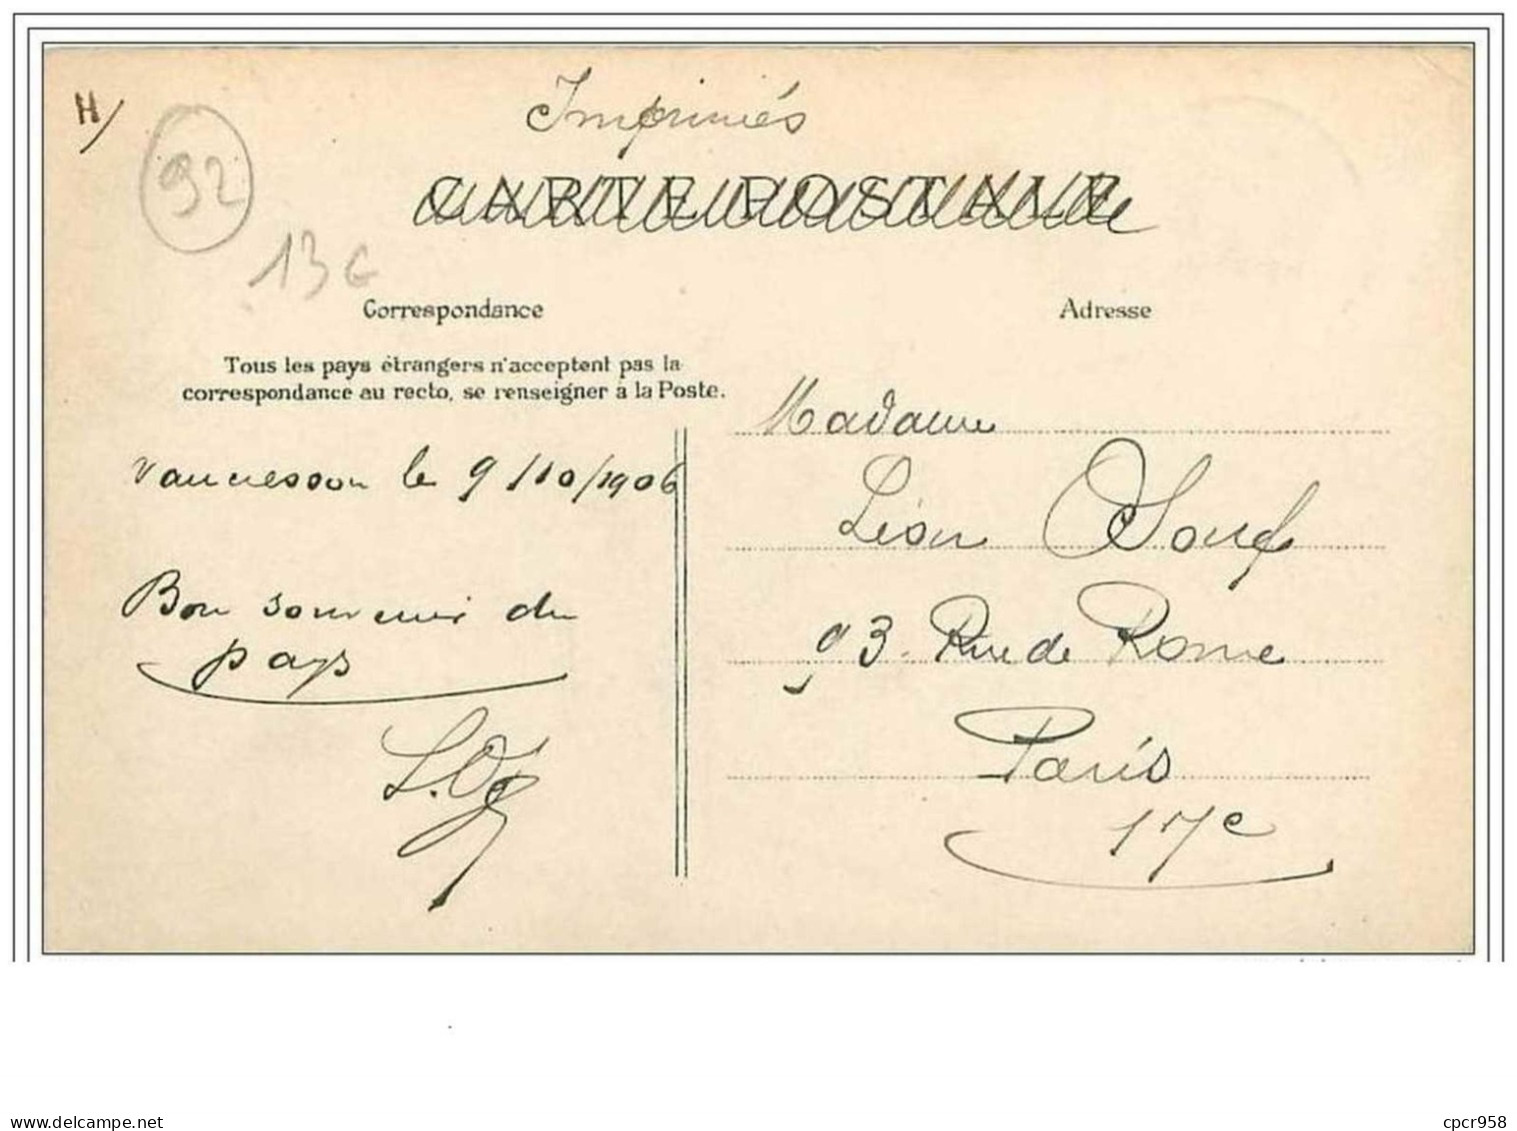 H/
Imprimés
92
CARTE POSTALE
13€
Correspondance
Adresse
Tous les pays étrangers n'acceptent pas la
correspondance au recto, se renseigner à la Poste.
Madame
Vaucresson le 9/10/1906
Léon
Bon souvenir du
pays
93. Rue de Rome
Paris
17e
cpcr958